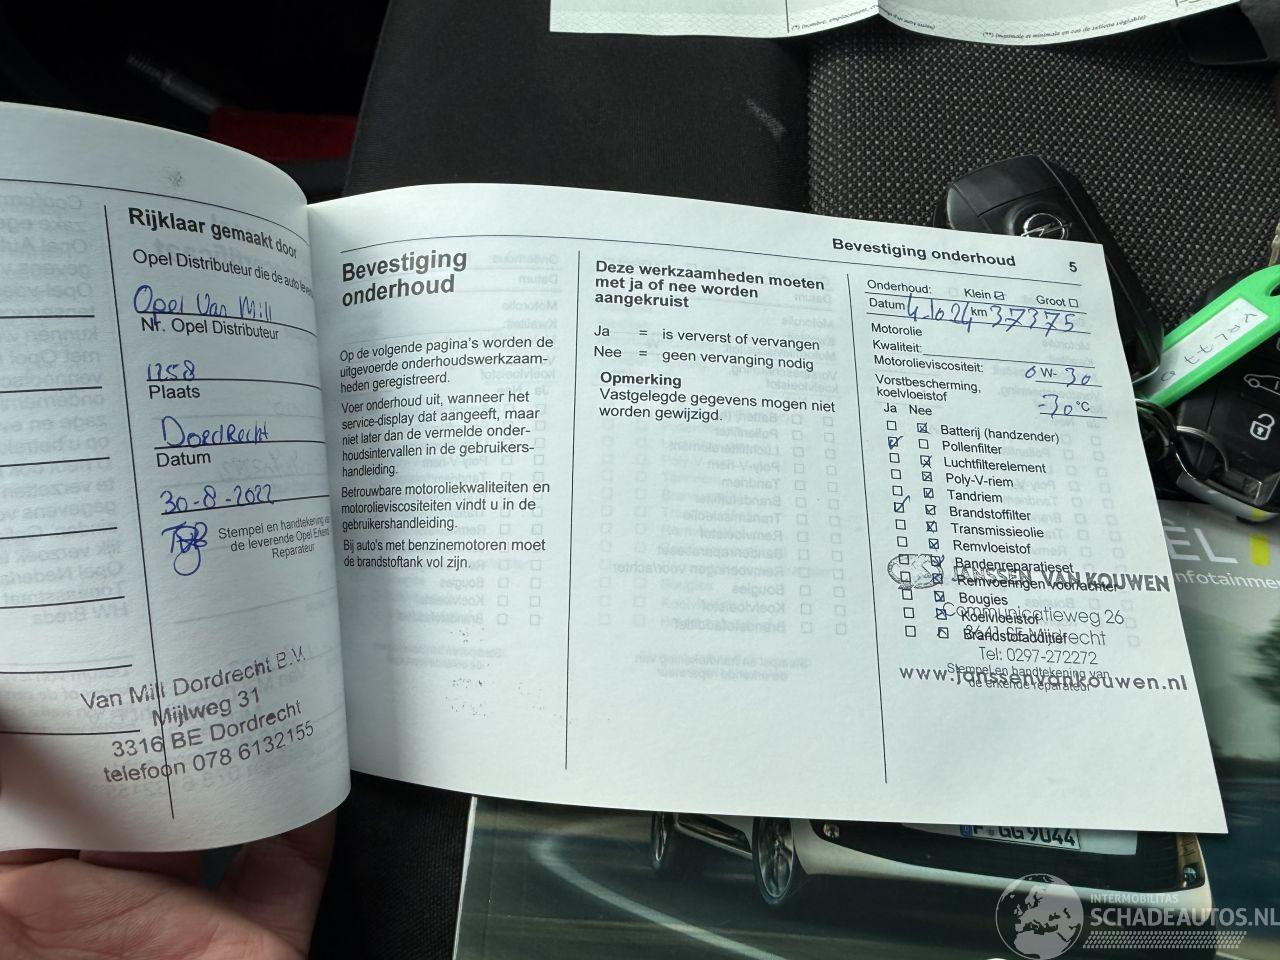 (*) (nombre, emplacement,
(**) (maximale et minimale en cas de
Rijklaar gemaakt door
Opel Distributeur die de auto
Opel Van Mill
Nr. Opel Distributeur
1258
Plaats
Dordrecht
Datum
30-8-2022
Stempel en handtekening van
de leverende Opel Erkend
Reparateur
Van Mill Dordrecht B.V.
Mijlweg 31
3316 BE Dordrecht
telefoon 078 6132155
Bevestiging
onderhoud
Op de volgende pagina's worden de
uitgevoerde onderhoudswerkzaam-
heden geregistreerd.
Voer onderhoud uit, wanneer het
service-display dat aangeeft, maar
niet later dan de vermelde onder-
houdsintervallen in de gebruikers-
handleiding.
Betrouwbare motoroliekwaliteiten en
motorolieviscositeiten vindt u in de
gebruikershandleiding.
Bij auto's met benzinemotoren moet
de brandstoftank vol zijn.
Deze werkzaamheden moeten
met ja of nee worden
aangekruist
Ja = is ververst of vervangen
Nee = geen vervanging nodig
Opmerking
Vastgelegde gegevens mogen niet
worden gewijzigd.
Bevestiging onderhoud 5
Onderhoud: Klein Groot
Datum 4-10-24 km 37375
Motorolie
Kwaliteit:
Motorolieviscositeit: 0 W- 30
Vorstbescherming,
koelvloeistof -30 °C
Ja Nee
Batterij (handzender)
Pollenfilter
Luchtfilterelement
Poly-V-riem
Tandriem
Brandstoffilter
Transmissieolie
Remvloeistof
Bandenreparatieset
Remvoeringen voor/achter
Bougies
Koelvloeistof
Brandstofadditief
Stempel en handtekening van
de erkende reparateur
JANSSEN VAN KOUWEN
Communicatieweg 26
3641 SE Mijdrecht
Tel: 0297-272272
www.janssenvankouwen.nl
GG 9044
INTERMOBILITAS
SCHADEAUTOS.NL